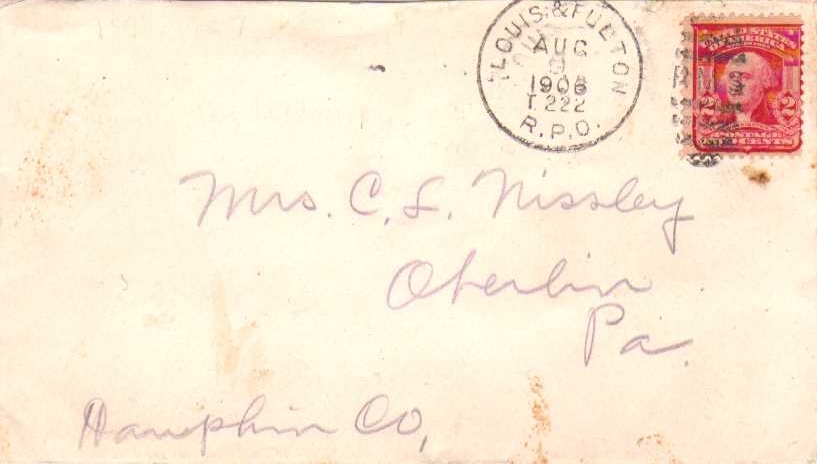 LOUIS & FULTON
AUG
1906
T. 222
R.P.O.
UNITED STATES
OF AMERICA
R M S
2 2
Mrs. C. L. Nissley
Oberlin
Pa.
Dauphin Co,